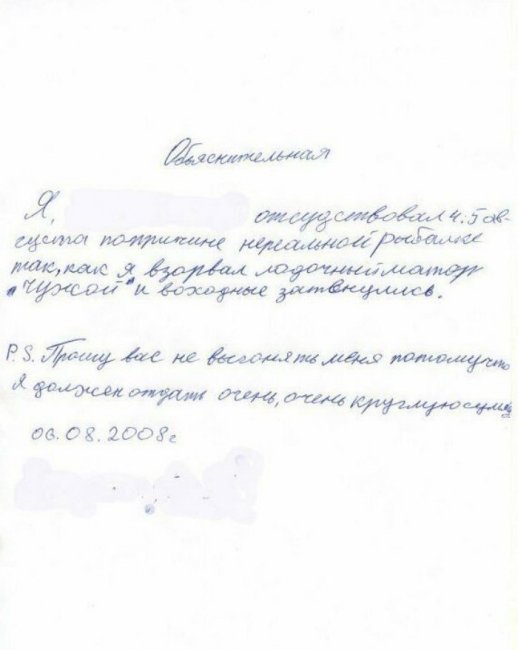 Объяснительная
Я, отсудствовал 4.5 ав-
густа попричине нереальной рыбалке
так, как я взорвал лодочный матор
"Чужой" и воходные затянулись.
P.S. Прошу вас не выгонять меня потомучто
я должен отдать очень, очень круглую сумму
06.08.2008г